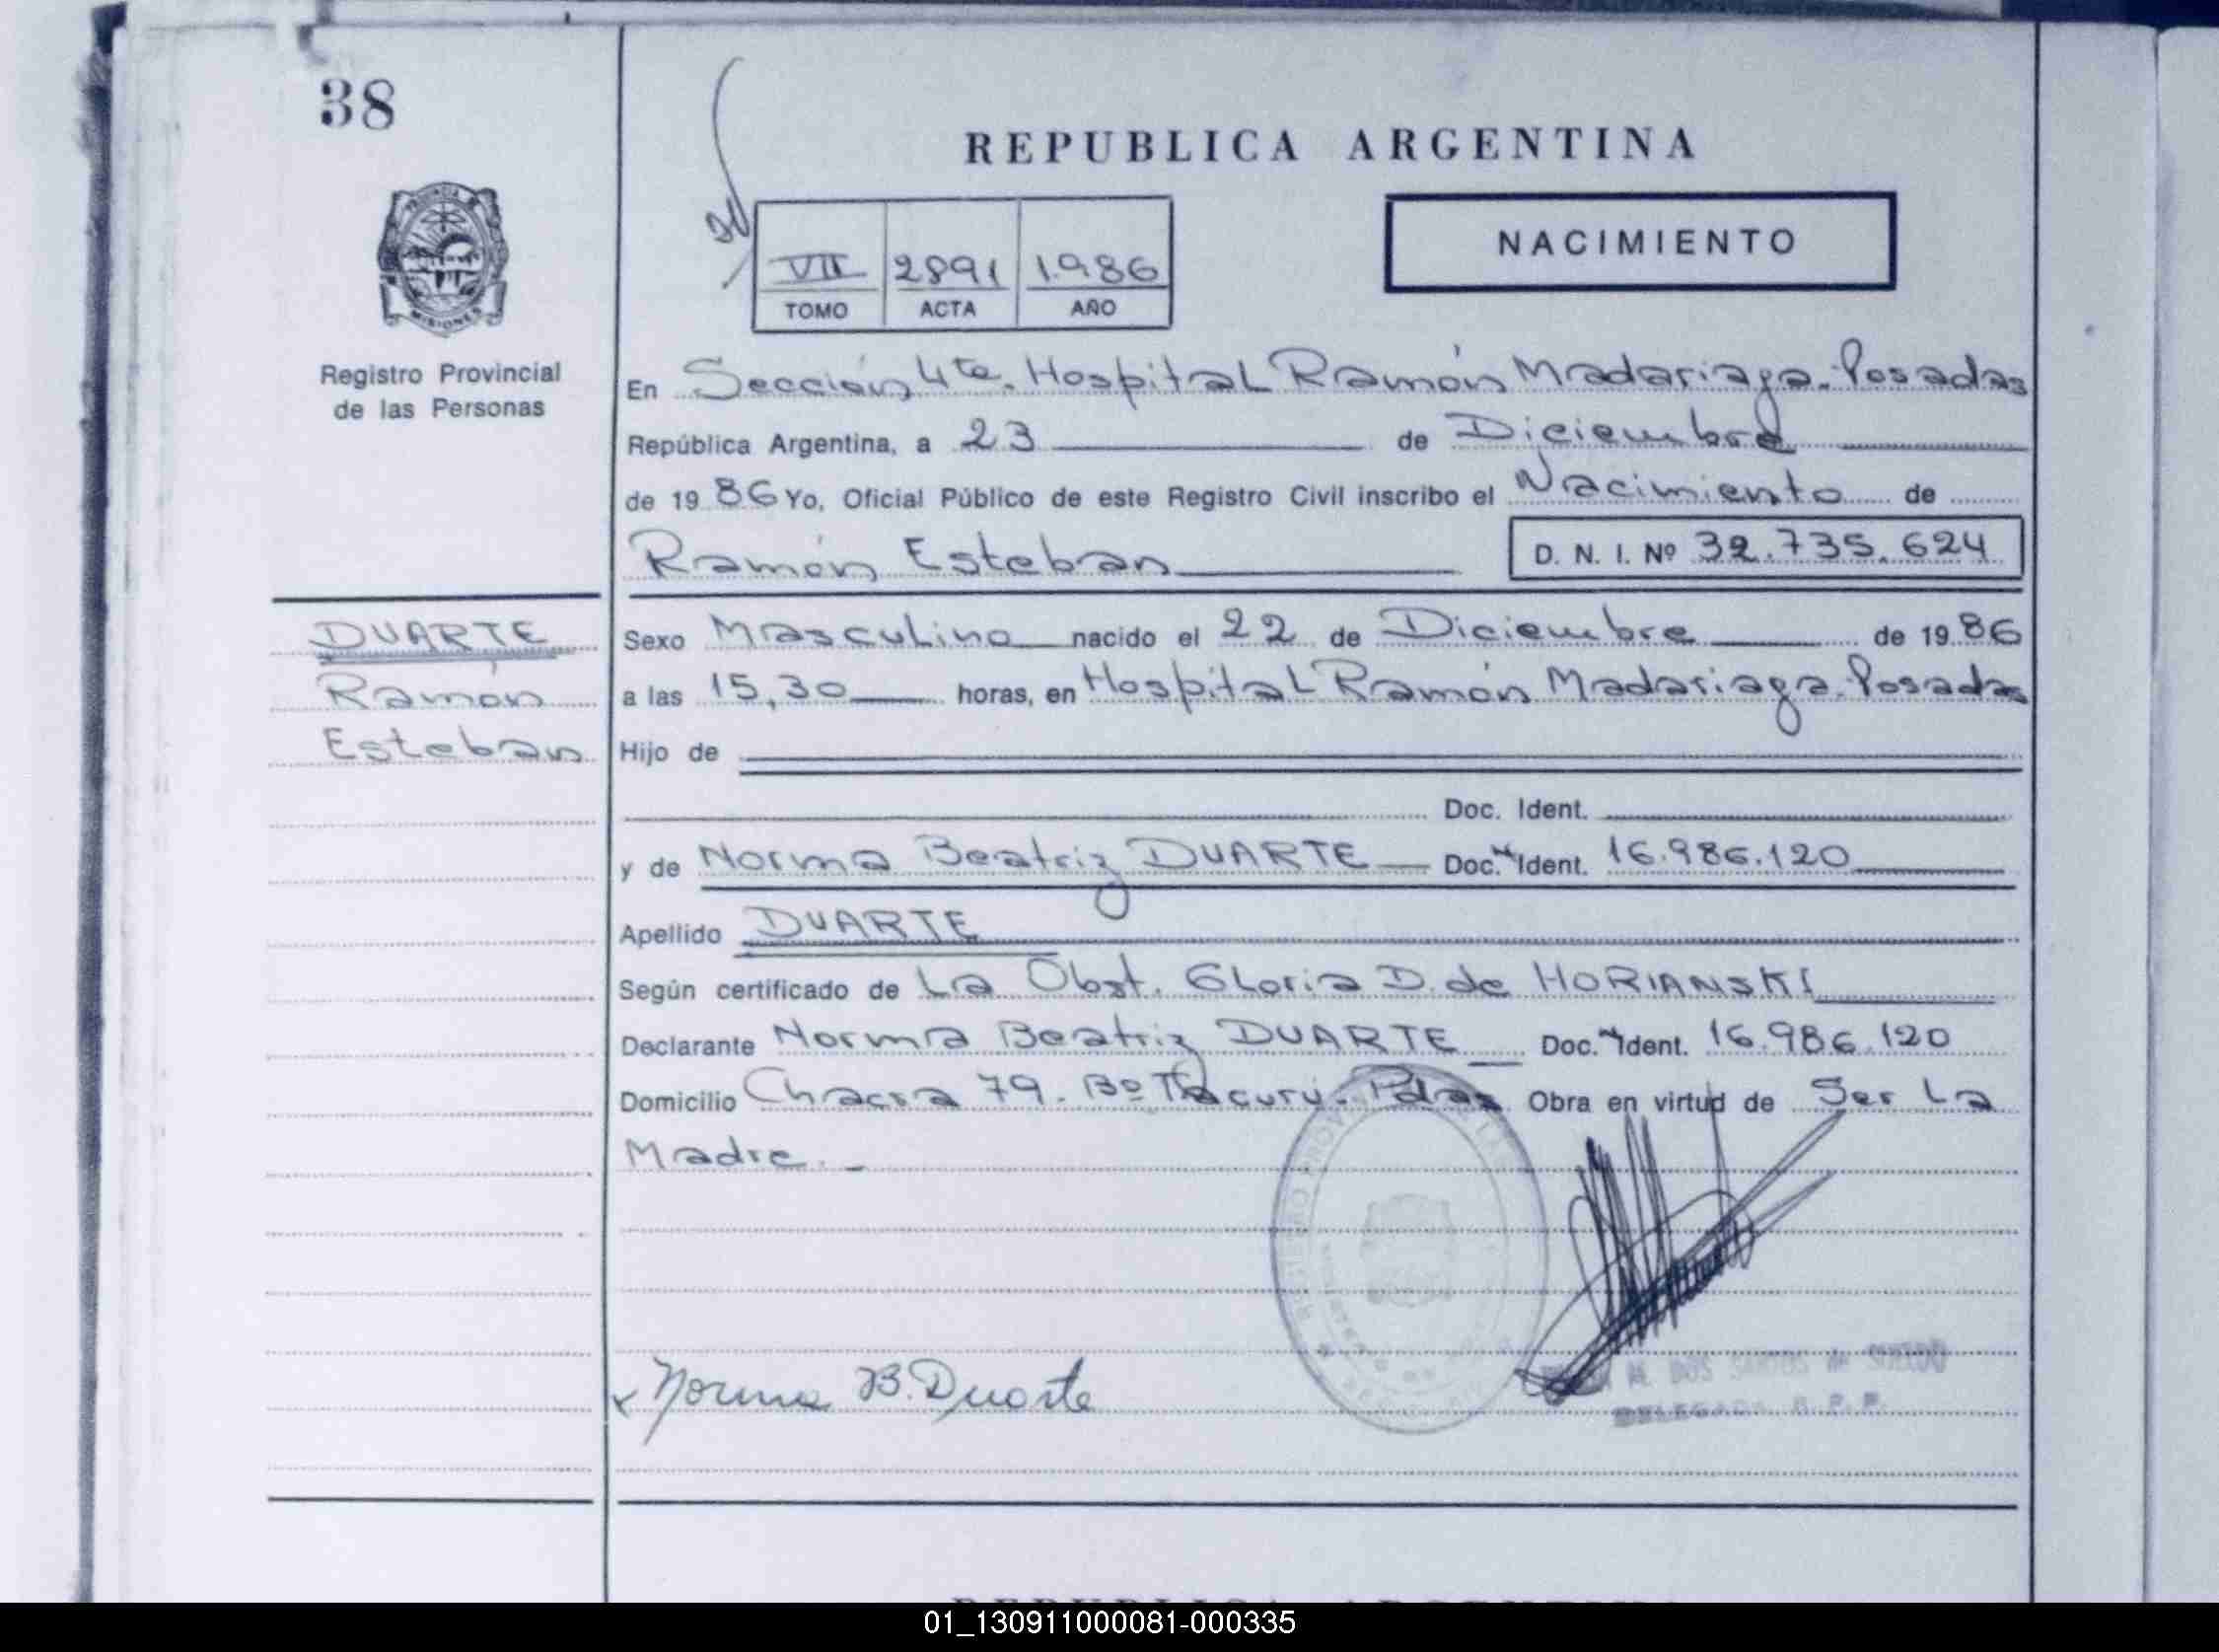 38
REPUBLICA ARGENTINA
VII 2891 1.986
TOMO ACTA AÑO
NACIMIENTO
MISIONES
Registro Provincial
de las Personas
En Sección 4ta. Hospital Ramón Madariaga. Posadas
República Argentina, a 23 de Diciembre
de 19 86 Yo, Oficial Público de este Registro Civil inscribo el Nacimiento de
Ramón Esteban D. N. I. Nº 32.735.624
DUARTE
Ramón
Esteban
Sexo Masculino nacido el 22 de Diciembre de 19 86
a las 15,30 horas, en Hospital Ramón Madariaga. Posadas
Hijo de
Doc. Ident.
y de Norma Beatriz DUARTE Doc. Ident. 16.986.120
Apellido DUARTE
Según certificado de La Obst. Gloria D. de HORIANSKI
Declarante Norma Beatriz DUARTE Doc. Ident. 16.986.120
Domicilio Chacra 79. Bº Tacurú. Pdas Obra en virtud de Ser La
Madre.
Norma B. Duarte
M. DOS SANTOS de
DELEGADA R. P. P.
01_130911000081-000335